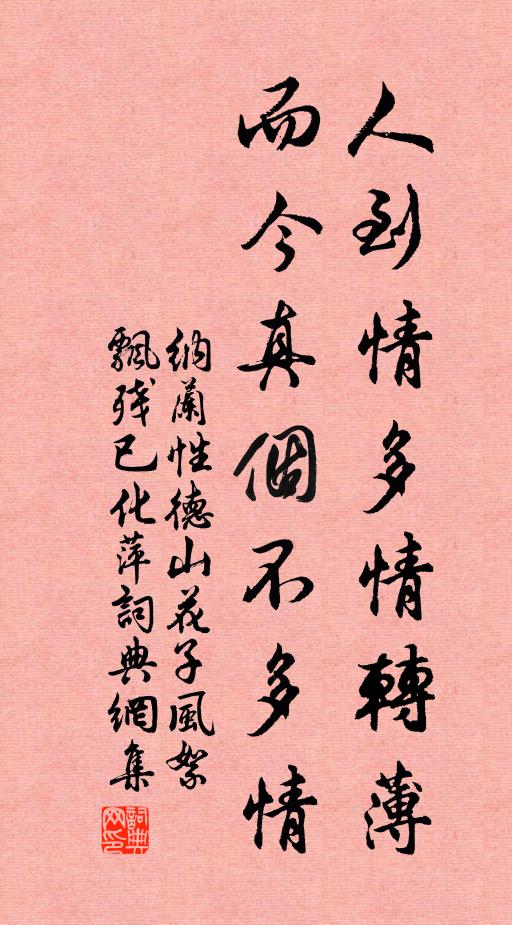 人到情多情轉薄
而今真個不多情
納蘭性德山花子風絮
飄殘已化萍詞典網集
詞典
网印